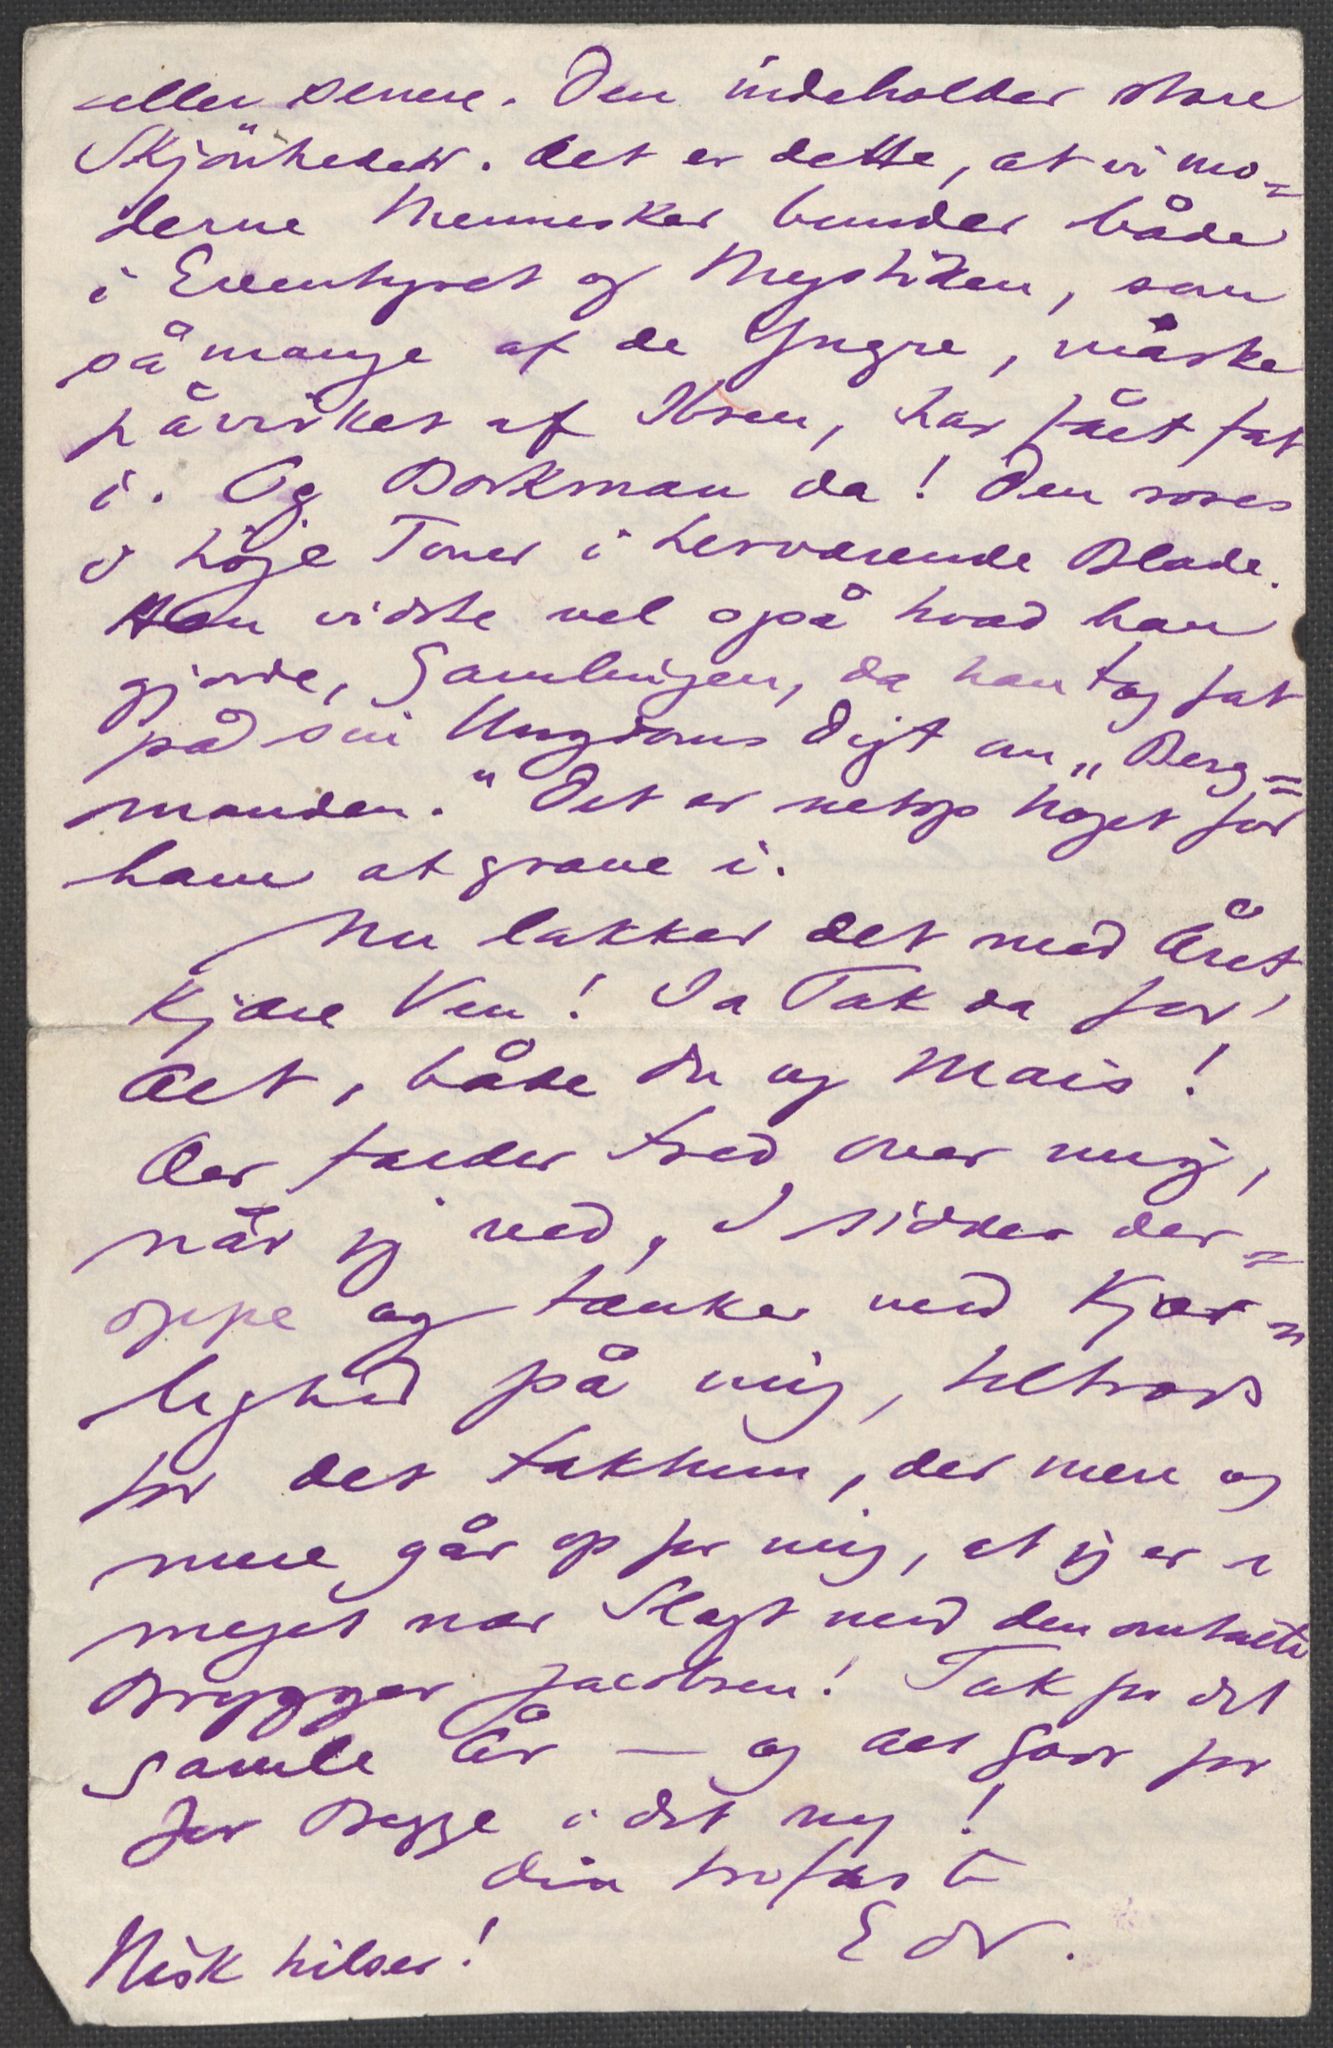 eller senere. Den indeholder store
Skjönheder. Det er dette, at vi mo=
derne Mennesker bunder både
i Eventyret og Mystiken, som
så mange af de Yngre, måske
påvirket af Ibsen, har fået fat
i. Og Borkman da! Den roses
i höje Toner i herværende Blade.
Han vidste vel også hvad han
gjorde, Gamlingen, da han tog fat
på sin Ungdoms Digt om "Berg=
manden." Det er netop Noget for
ham at grave i.
Nu lakker det med Året,
Kjære Ven! Ja Tak da for
Alt, både Du og Mais!
Der falder Fred over mig,
når jeg ved, I sidder der=
oppe og tænker med Kjær=
lighed på mig, tiltrods
for det Faktum, der mere og
mere går op for mig, at jeg er i
meget nær Slægt med den omtalte
Brygger Jacobsen! Tak for det
gamle År — og alt Godt for
Jer Begge i det ny!
Din trofaste
EdV.
Nisk hilser!